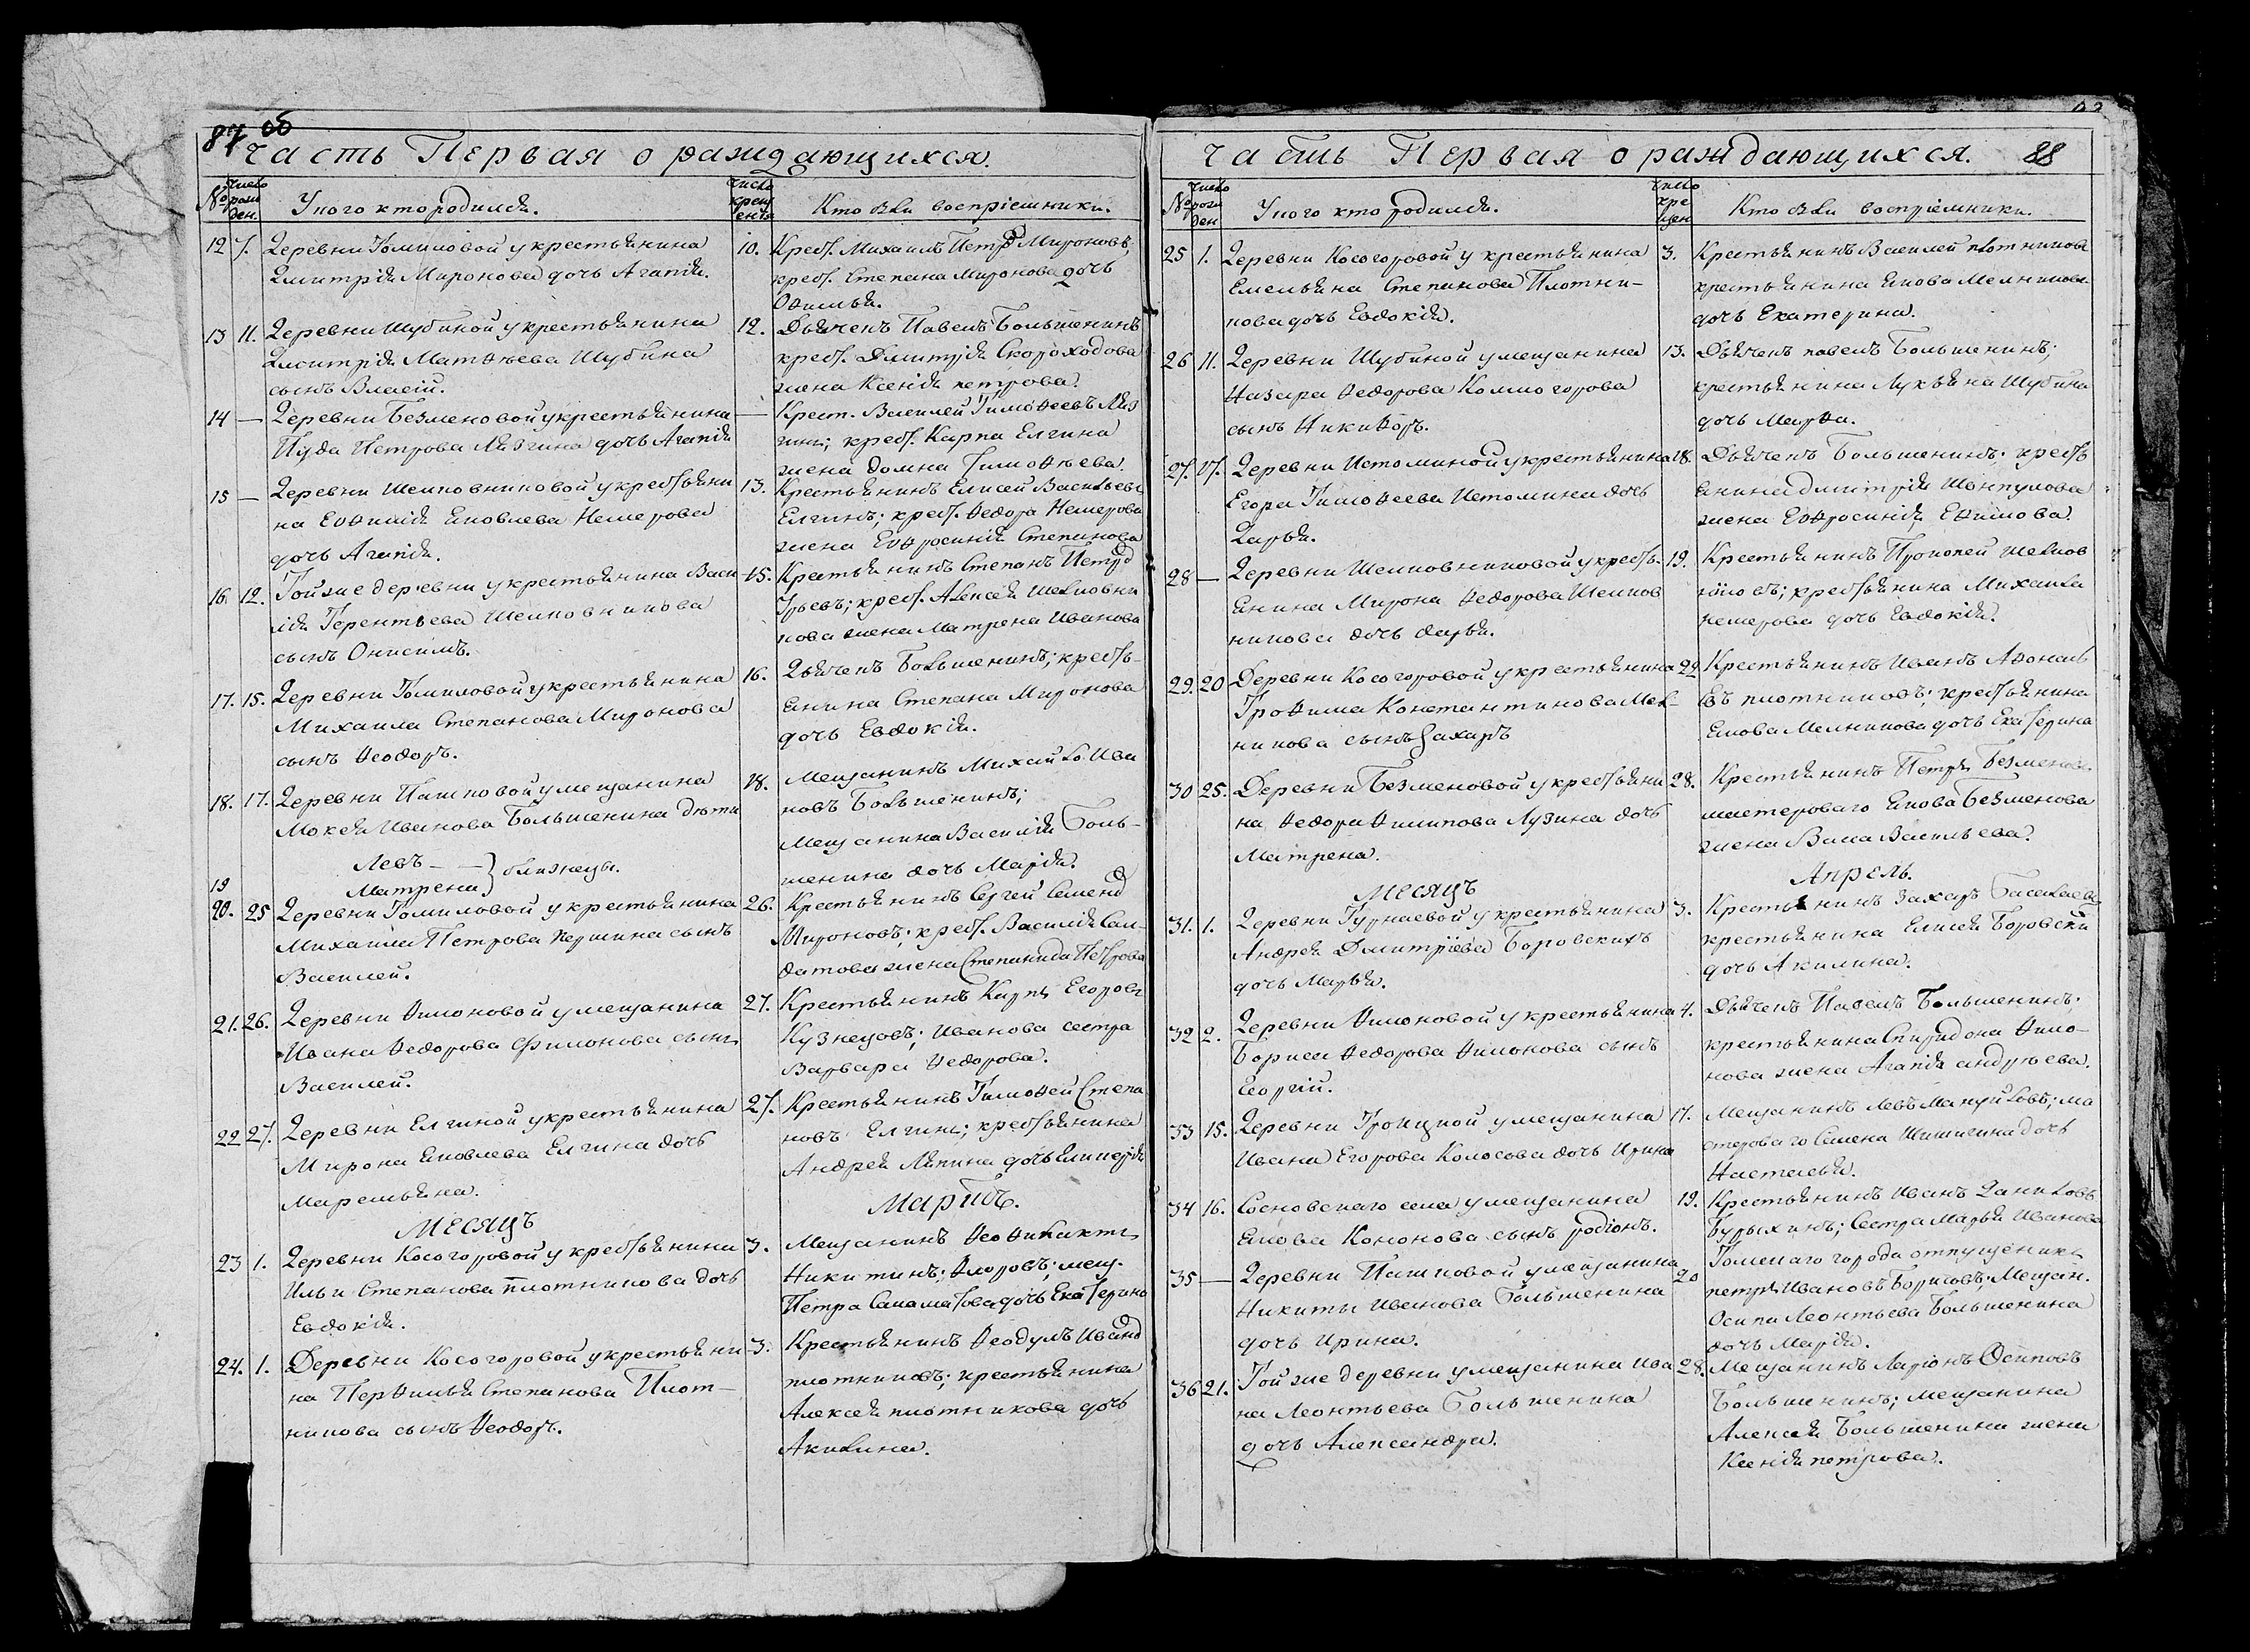 87 об
Часть Первая о раждающихся.
№
число рожден.
У кого кто родился.
число крещения
Кто были восприемники.
12 7. Деревни Томиловой у крестьянина
Дмитрія Миронова дочь Агапія.
10. Крест. Михаилъ Петровъ Мироновъ;
крест. Степана Миронова дочь
Ѳимья.
13 11. Деревни Шубиной у крестьянина
Дмитрія Матѳѣева Шубина
сынъ Власій.
12. Дьячекъ Павелъ Большенинъ
крест. Дмитрія Скороходова
жена Ксенія петрова.
14 — Деревни Безменовой у крестьянина
Пуда Петрова Лязгина дочь Агапія
— Крест. Василей Тимоѳеевъ Ляз
гинъ; крест. Карпа Елгина
жена домна Тимоѳѣева.
15 — Деревни Шелковниковой у крестьяни
на Евѳимія Яковлева Немерова
дочь Агапія.
13. Крестьянинъ Елисей Васильевъ
Елгинъ; крест. Ѳедора Немерова
жена Евѳросинія Степанова
16. 12. Той же деревни у крестьянина Васи
лія Терентьева Шелковникова
сынъ Онисимъ.
15. Крестьянинъ Степанъ Петровъ
крест. Алексея шелковни
кова жена Матрена Иванова
17. 15. Деревни Томиловой у крестьянина
Михаила Степанова Миронова
сынъ Ѳеодоръ.
16. Дьячекъ Большенинъ; кресть-
янина Степана Миронова
дочь Евдокія.
18. 17. Деревни Пашковой у мещанина
Мокея Иванова Большенина дѣти
Левъ — —
19 Матрена } близнецы.
18. Мещанинъ Михайло Ива
новъ Большенинъ;
Мещанина Василія Боль-
шенина дочь Марія.
20. 25 Деревни Томиловой у крестьянина
Михаила Петрова Першина сынъ
Василей.
26. Крестьянинъ Сергей Семеновъ
Мироновъ; крест. Василія Сал-
датова жена Степанида Петрова
21. 26. Деревни Ѳилоновой у мещанина
Ивана Ѳедорова Филонова сынъ
Василей.
27. Крестьянинъ Карпъ Егоровъ
Кузнецовъ; Иванова сестра
Варвара Ѳедорова.
22 27. Деревни Елгиной у крестьянина
Мирона Яковлева Елгина дочь
Маремьяна.
27. Крестьянинъ Тимоѳей Степа
новъ Елгинъ; крестьянина
Андрея Ляпина дочь Гликерія
Месяцъ
Мартъ.
23 1. Деревни Косогоровой у крестьянина
Ильи Степанова плотникова дочь
Евдокія.
3. Мещанинъ Ѳеоѳилактъ
Никитинъ; Ѳлоровъ; мещ.
Петра Саламатова дочь Екатерина
24. 1. Деревни Косогоровой у крестьяни
на Перѳилья Степанова Плот-
никова сынъ Ѳеодоръ.
3. Крестьянинъ Ѳеодулъ Ивановъ
плотниковъ; крестьянина
Алексея плотникова дочь
Акилина.
Часть Первая о раждающихся. 88
№
число рожден
У кого кто родился.
число крещен
Кто были восприемники.
25 1. Деревни Косогоровой у крестьянина
Емельяна Степанова Плотни-
кова дочь Евдокія.
3. Крестьянинъ Василей плотниковъ
крестьянина Якова Мелникова
дочь Екатерина.
26 11. Деревни Шубиной у мещанина
Назара Ѳедорова Колмогорова
сынъ Никиѳоръ.
13. Дьячекъ павелъ Большенинъ;
крестьянина Лукьяна Шубина
дочь Марѳа.
27. 17. Деревни Истоминой у крестьянина
Егора Тимоѳеева Истомина дочь
Дарья.
18. Дьячекъ Большенинъ; кресть
янина дмитрія
жена Евѳросинія Еѳимова.
28 — Деревни Шелковниковой у кресть-
янина Мирона Ѳедорова Шелков
никова дочь дарья.
19. Крестьянинъ Прокопей шелков
никовъ; крестьянина Михаила
немерова дочь Евдокія.
29. 20 Деревни Косогоровой у крестьянина
Троѳима Константинова Мел-
никова сынъ Захаръ
22 Крестьянинъ Иванъ Аѳонась
евъ плотниковъ; крестьянина
Якова Мелникова дочь Екатерина
30 25. Деревни Безменовой у крестьяни
на Ѳедора Ѳилипова Лузина дочь
Матрена.
28. Крестьянинъ Петръ Безменовъ
мастероваго Якова Безменова
жена Васса Васильева.
Месяцъ
Апрель.
31. 1. Деревни Гурнаевой у крестьянина
Андрея Дмитріева Боровскихъ
дочь Марья.
3. Крестьянинъ Захаръ
крестьянина Елисея Боровски
дочь Акилина.
32 2. Деревни Ѳилоновой у крестьянина
Бориса Ѳедорова Ѳилонова сынъ
Георгій.
4. Дьячекъ Павелъ Большенинъ;
крестьянина Спиридона Ѳило-
нова жена Агапія андрѣева.
33 15. Деревни Троицкой у мещанина
Ивана Егорова Колосова дочь Ирина
17. Мещанинъ Левъ Мануйловъ; ма
стероваго Семена Шишигина дочь
Настасья.
34 16. Сосновскаго села у мещанина
Якова Кононова сынъ родіонъ.
19. Крестьянинъ Иванъ Даниловъ
Бурыхинъ; Сестра Марья Иванова
35 — Деревни Пашковой у мещанина
Никиты Иванова Большенина
дочь Ирина.
20 Томскаго города отпущеникъ
петръ Ивановъ Борисовъ; Мещан.
Осипа Леонтьева Большенина
дочь Марія.
36 21. Той же деревни у мещанина Ива
на Леонтьева Большенина
дочь Александра.
28. Мещанинъ Ларіонъ Осиповъ
Большенинъ; мещанина
Алексея Большенина жена
Ксенія петрова.